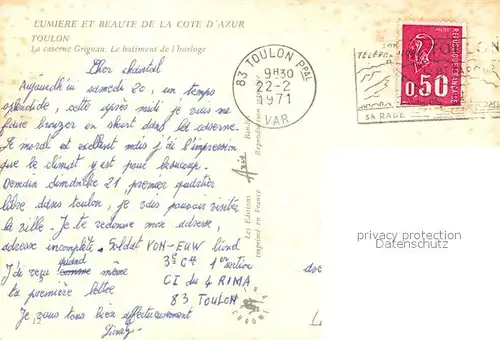 LUMIERE ET BEAUTE DE LA COTE D'AZUR
TOULON
La caserne Grignan: Le batiment de l'horloge
Chor chantal
Aujourdh'ui samedi 20, un temps
splendide, cette après midi je vais me
faire bronzer en short dans la caserne.
Le moral et exellent mais j'ai l'impression
que le climat y est pour beaucoup.
Demain dimanche 21, premier quartier
libre dans toulon, je vais pouvoir visiter
la ville. Je te redonne mon adresse,
adresse incomplète. Soldat
J'ai reçu quand même
ta première lettre
3e Cie 1er section
CI du 4 RIMA
83 TOULON
Je vous tous bien affectueusement
83 TOULON PPAL
9H30
22-2
1971
VAR
TOULON
SA RADE
REPUBLIQUE FRANCAISE
0,50
Les Editions
imprimé en France
Reproduction
privacy protection
Datenschutz